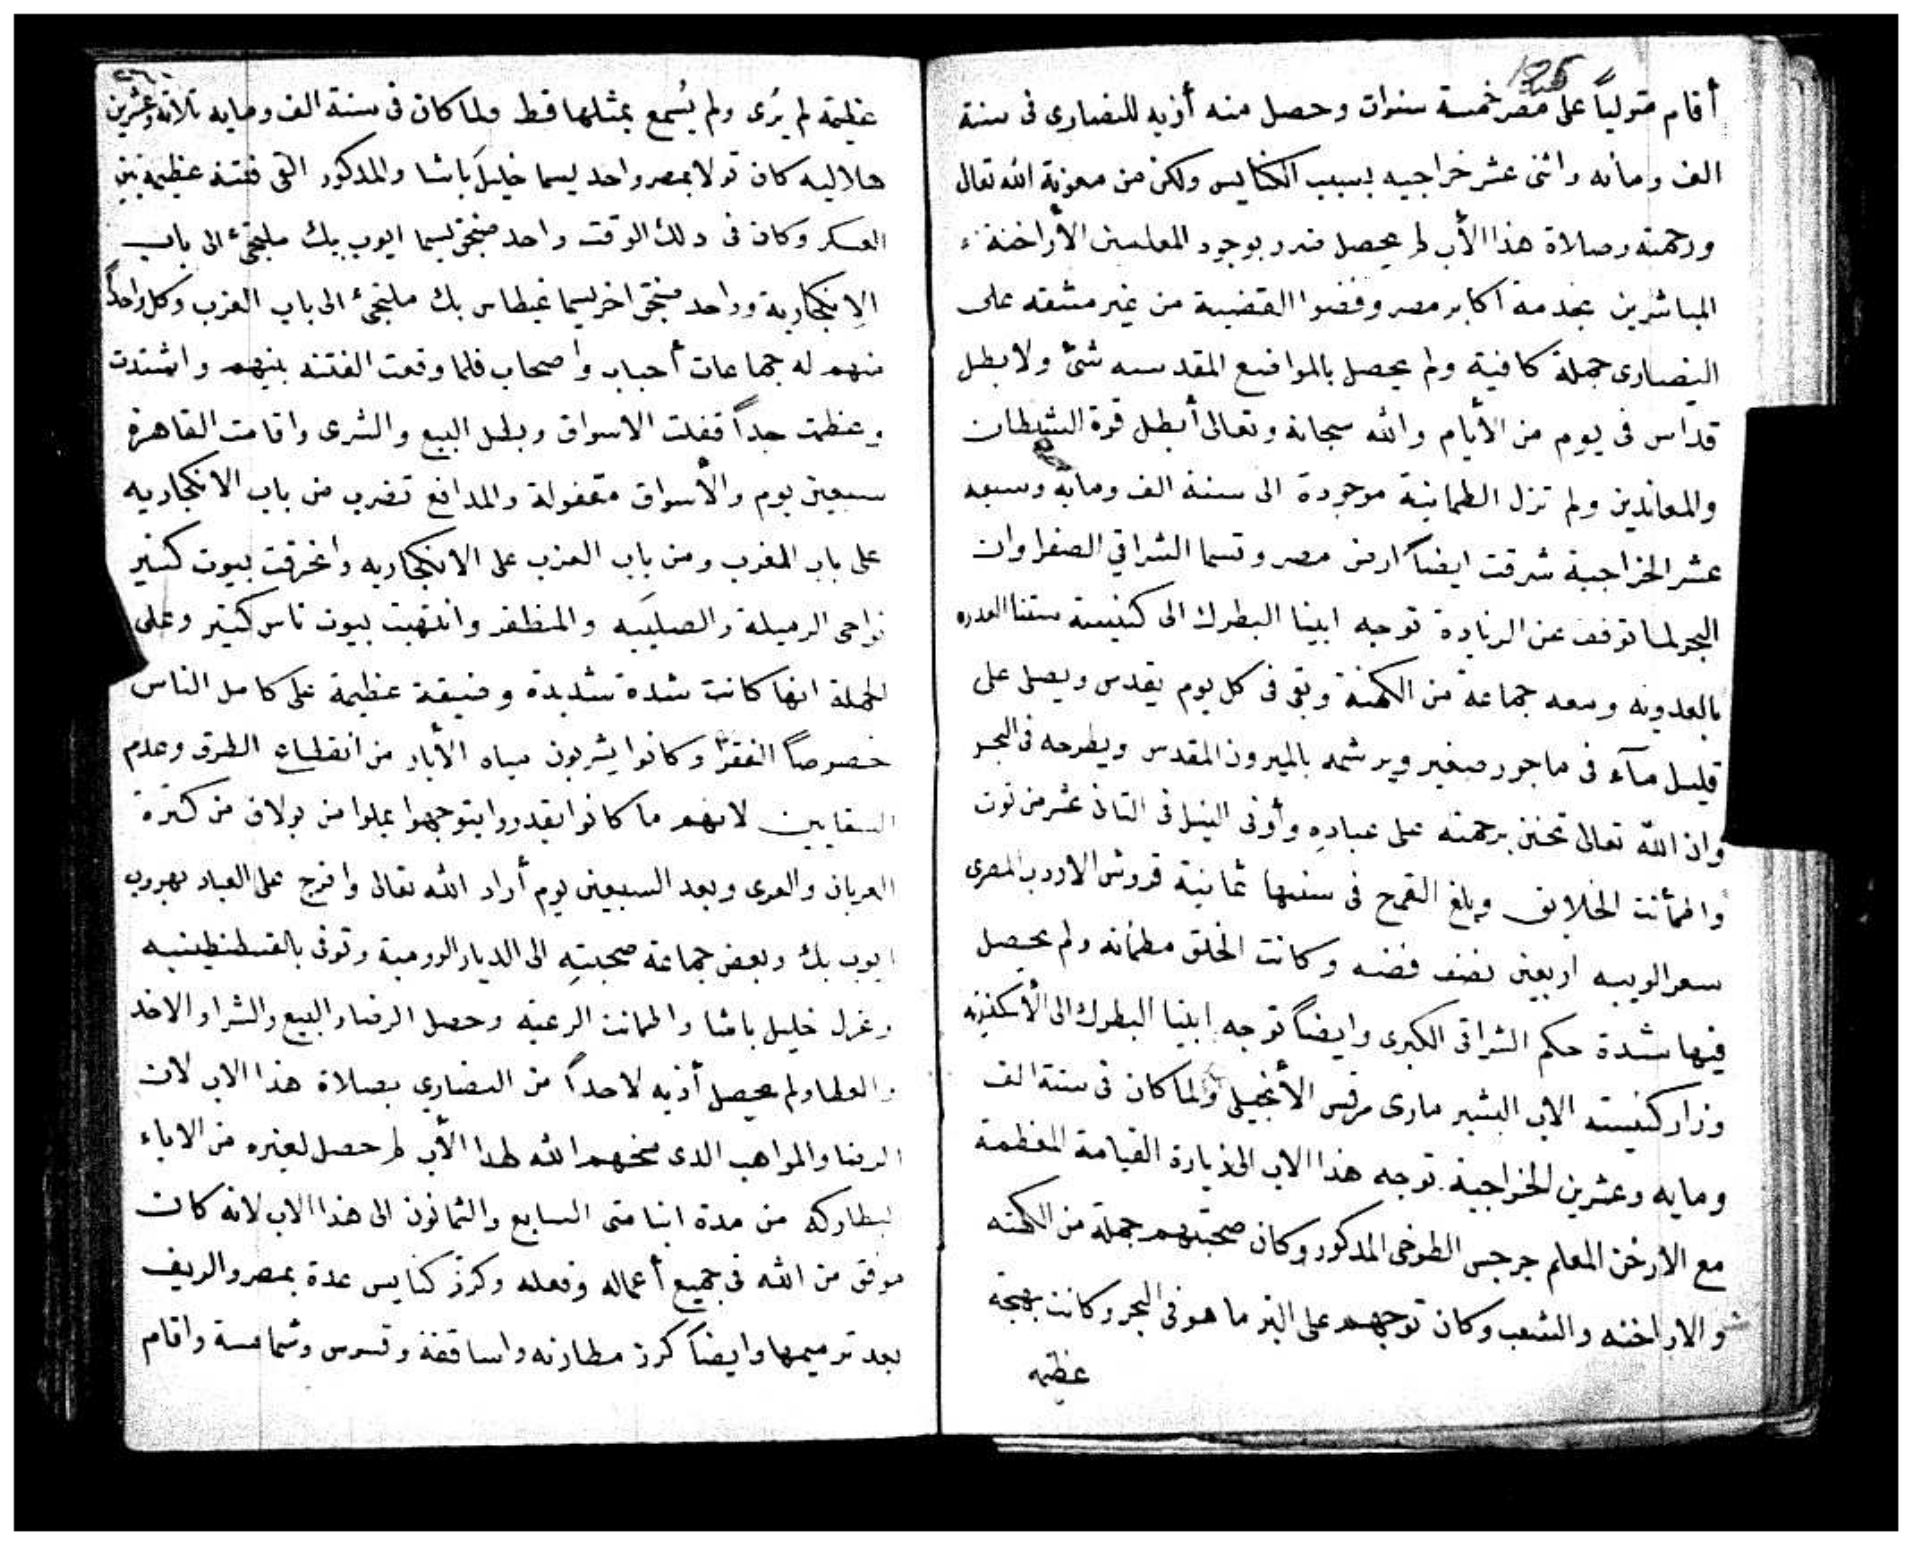 125
أقام متولياً على مصر خمسة سنوات وحصل منه أزيه للنصارى فى سنة
الف ومائه واثنى عشر خراجيه بسبب الكنايس ولكن من معونة الله تعالى
ورحمته وصلاة هذا الأب لم يحصل ضرر بوجود المعلمين الأراخنة
المباشرين بخدمة اكابر مصر وفضوا القضية من غير مشقه على
النصارى جملة كافية ولم يحصل بالمواضع المقدسه شئ ولا بطل
قداس فى يوم من الأيام والله سبحانه وتعالى أبطل قوة الشيطان
والمعاندين ولم تزل الطمانينة موجودة الى سنة الف ومايه وسبعه
عشر الخراجية شرقت ايضاً ارض مصر وتسما الشراقي الصغرا وان
البحر لما توقف عن الزيادة توجه ابينا البطرك الى كنيسة ستنا العدره
بالعدويه ومعه جماعة من الكهنة وبقى فى كل يوم يقدس ويصلى على
قليل مآء فى ماجور صغير ويرشمه بالميرون المقدس ويطرحه فى البحر
وان الله تعالى تحنن برحمته على عباده وأوفى النيل فى التانى عشر من توت
واطمأنت الخلايق وبلغ القمح فى سنتها ثمانية قروش الاردب المصرى
سعر الويبه اربعين نصف فضه وكانت الخلق مطمأنه ولم يحصل
فيها شدة حكم الشراقى الكبرى وايضاً توجه ابينا البطرك الى الأسكندريه
وزار كنيسته الاب البشير مارى مرقس الأنجيلى ولما كان فى سنة الف
ومايه وعشرين الخراجية توجه هذا الاب الى زيارة القيامة المعظمة
مع الارخن المعلم جرجس الطوخى المذكور وكان صحبتهم جملة من الكهنه
والاراخنه والشعب وكان توجههم على البر ما هو فى البحر وكانت بهجة
عظيمه
عظيمه لم يُرى ولم يُسمع بمثلها قط ولما كان فى سنة الف ومايه تلاته وعشرين
هلاليه كان تولا بمصر واحد يسما خليل باشا والمدكور القى فتنة عظيمه بين
العسكر وكان فى دلك الوقت واحد صنجق يسما ايوب بيك ملتجئ الى باب
الإنكجاريه وواحد صنجق اخر يسما غيطاس بك ملتجئ الى باب العزب وكل واحداً
منهم له جماعات أحباب وأصحاب فلما وقعت الفتنه بينهم واشتدت
وعظمت جداً قفلت الاسواق وبطل البيع والشرى واقامت القاهرة
سبعين يوم والأسواق مقفولة والمدافع تضرب من باب الانكجاريه
على باب المغرب ومن باب العزب على الانكجاريه وانحرقت بيوت كتير
نواحى الرميلة والصليبه والمظفر وانتهبت بيوت ناس كتير وعلى
الجملة انها كانت شدة شديدة وضيقة عظيمة على كامل الناس
خصوصاً الفقرا وكانوا يشربون مياه الأبار من انقطاع الطرق وعدم
السقايين لانهم ما كانوا يقدروا يتوجهوا يملوا من بولاق من كترة
العربان والعرى وبعد السبعين يوم أراد الله تعالى وافرج على العباد بهروب
ايوب بك وبعض جماعة صحبته الى الديار الرومية وتوفى بالقسطنطينيه
وعزل خليل باشا واطمانت الرعيه وحصل الرضا والبيع والشرا والاخد
والعطا ولم يحصل أذيه لاحداً من النصارى بصلاة هذا الاب لان
الرضا والمواهب الدى منحهم الله لهذا الأب لم حصل لغيره من الاباء
البطاركه من مدة انبا متى السابع والثمانون الى هذا الاب لانه كان
موفق من الله فى جميع أعماله وفعله وكرز كنايس عدة بمصر والريف
بعد ترميمها وايضاً كرز مطارنه واساقفة وقسوس وشمامسة واقام